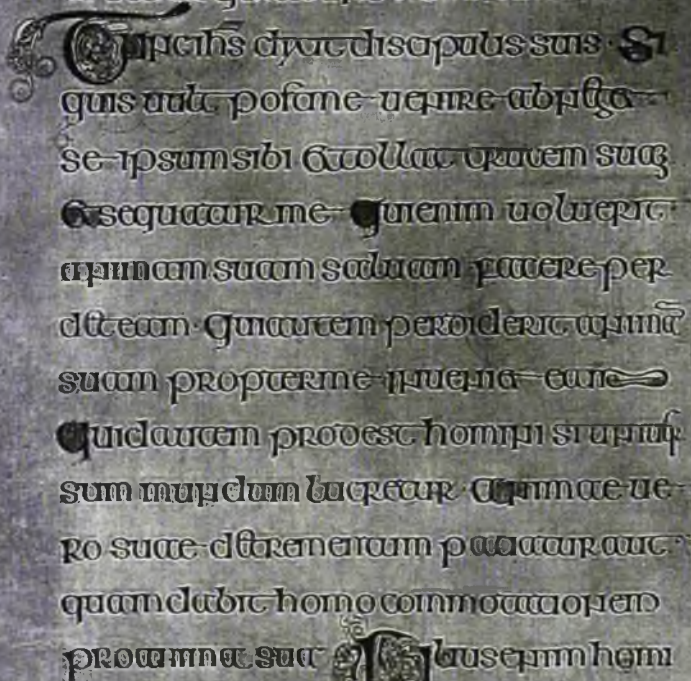 Tunc ihs dixit discipulis suis · Si
quis uult post me uenire abneget
se ipsum sibi et tollat crucem suā
et sequatur me quienim uoluerit
animam suam saluam facere per
det eam · qui autem perdiderit animā
suam propter me inueniet eam
quid autem prodest homini si uniuer
sum mundum lucretur · animae ue
ro suae detrementum patiatur aut
quam dabit homo commotationem
pro anima sua filius enim homi